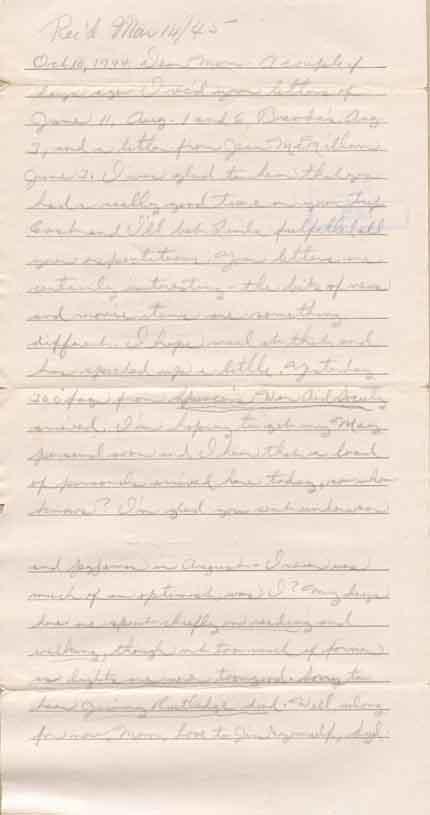 Rec'd Mar 14/45
Oct 10, 1944. Dear Mom. A couple of
days ago I rec'd your letters of
June 11, Aug. 1 and 6, Brenda's Aug
2, and a letter from Jean McMillan
June 2. I was glad to hear that you
had a really good time on your trip
East and I'll bet
your expectations. Your letters are
certainly interesting - the bits of news
and movie items are something
different. I hope mail at that end
has speeded up a little. Yesterday
300 fags from War Aid Society
arrived. I'm hoping to get my May
personal soon and I hear that a load
of personals arrived here today, so who
knows? I'm glad you sent underwear
and pyjamas in August - I never was
much of an optimist was I? My days
here are spent chiefly in reading and
walking, though not too much of former
as lights are Sorry to
hear Jimmy Rutledge died. Well so long
for now, Mom, love to Jim & yourself,